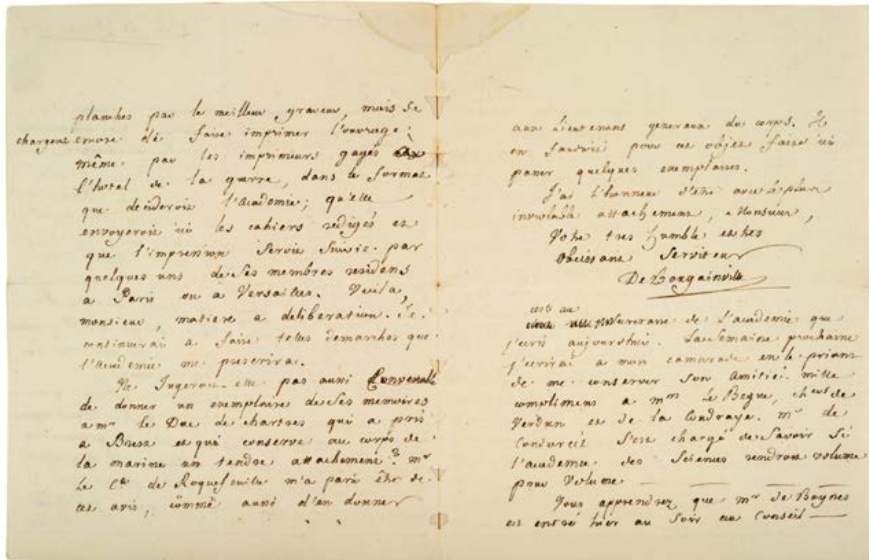 planches par le meilleur graveur, mais se
chargeroit encore de faire imprimer l'ouvrage
même par les imprimeurs gagés
l'hotel de la guerre, dans le format
que désireroit l'Académie; qu'elle
envoyeroit ici les cahiers redigés et
que l'impression seroit suivie par
quelques uns de ses membres residens
a Paris ou a Versailles. Voila,
monsieur, matiere a deliberation. Je
continuerai a faire telles demarches que
l'Academie me prescrira.
Ne Jugeroit elle pas aussi Convenable
de donner un exemplaire de ses memoires
a mr le Duc de chartres qui a pris
a Brest et qui conserve au corps de
la marine un tendre attachement? mr
Le Cte de Roquefeuille m'a paru être de
cet avis, comme aussi d'en donner
aux Lieutenans generaux du corps. Il
en faudroit pour cet objet faire ici
passer quelques exemplaires.
J'ai l'honneur d'être avec le plus
inviolable attachement, Monsieur,
Votre tres humble et tres
obeissant Serviteur
De Bougainville
cest au
Secretaire de l'academie que
j'ecris aujourd'hui. La Semaine prochaine
j'ecrirai a mon camarade en le priant
de me conserver son Amitié. mille
complimens a mrs Le Begue, chev. de
Verdun et de la Coudraye. mr de
Condorcet s'est chargé de Savoir Si
l'academie des Sciences rendroit volume
pour Volume
Vous apprendrez que mr de Boynes
est entré hier au Soir au Conseil